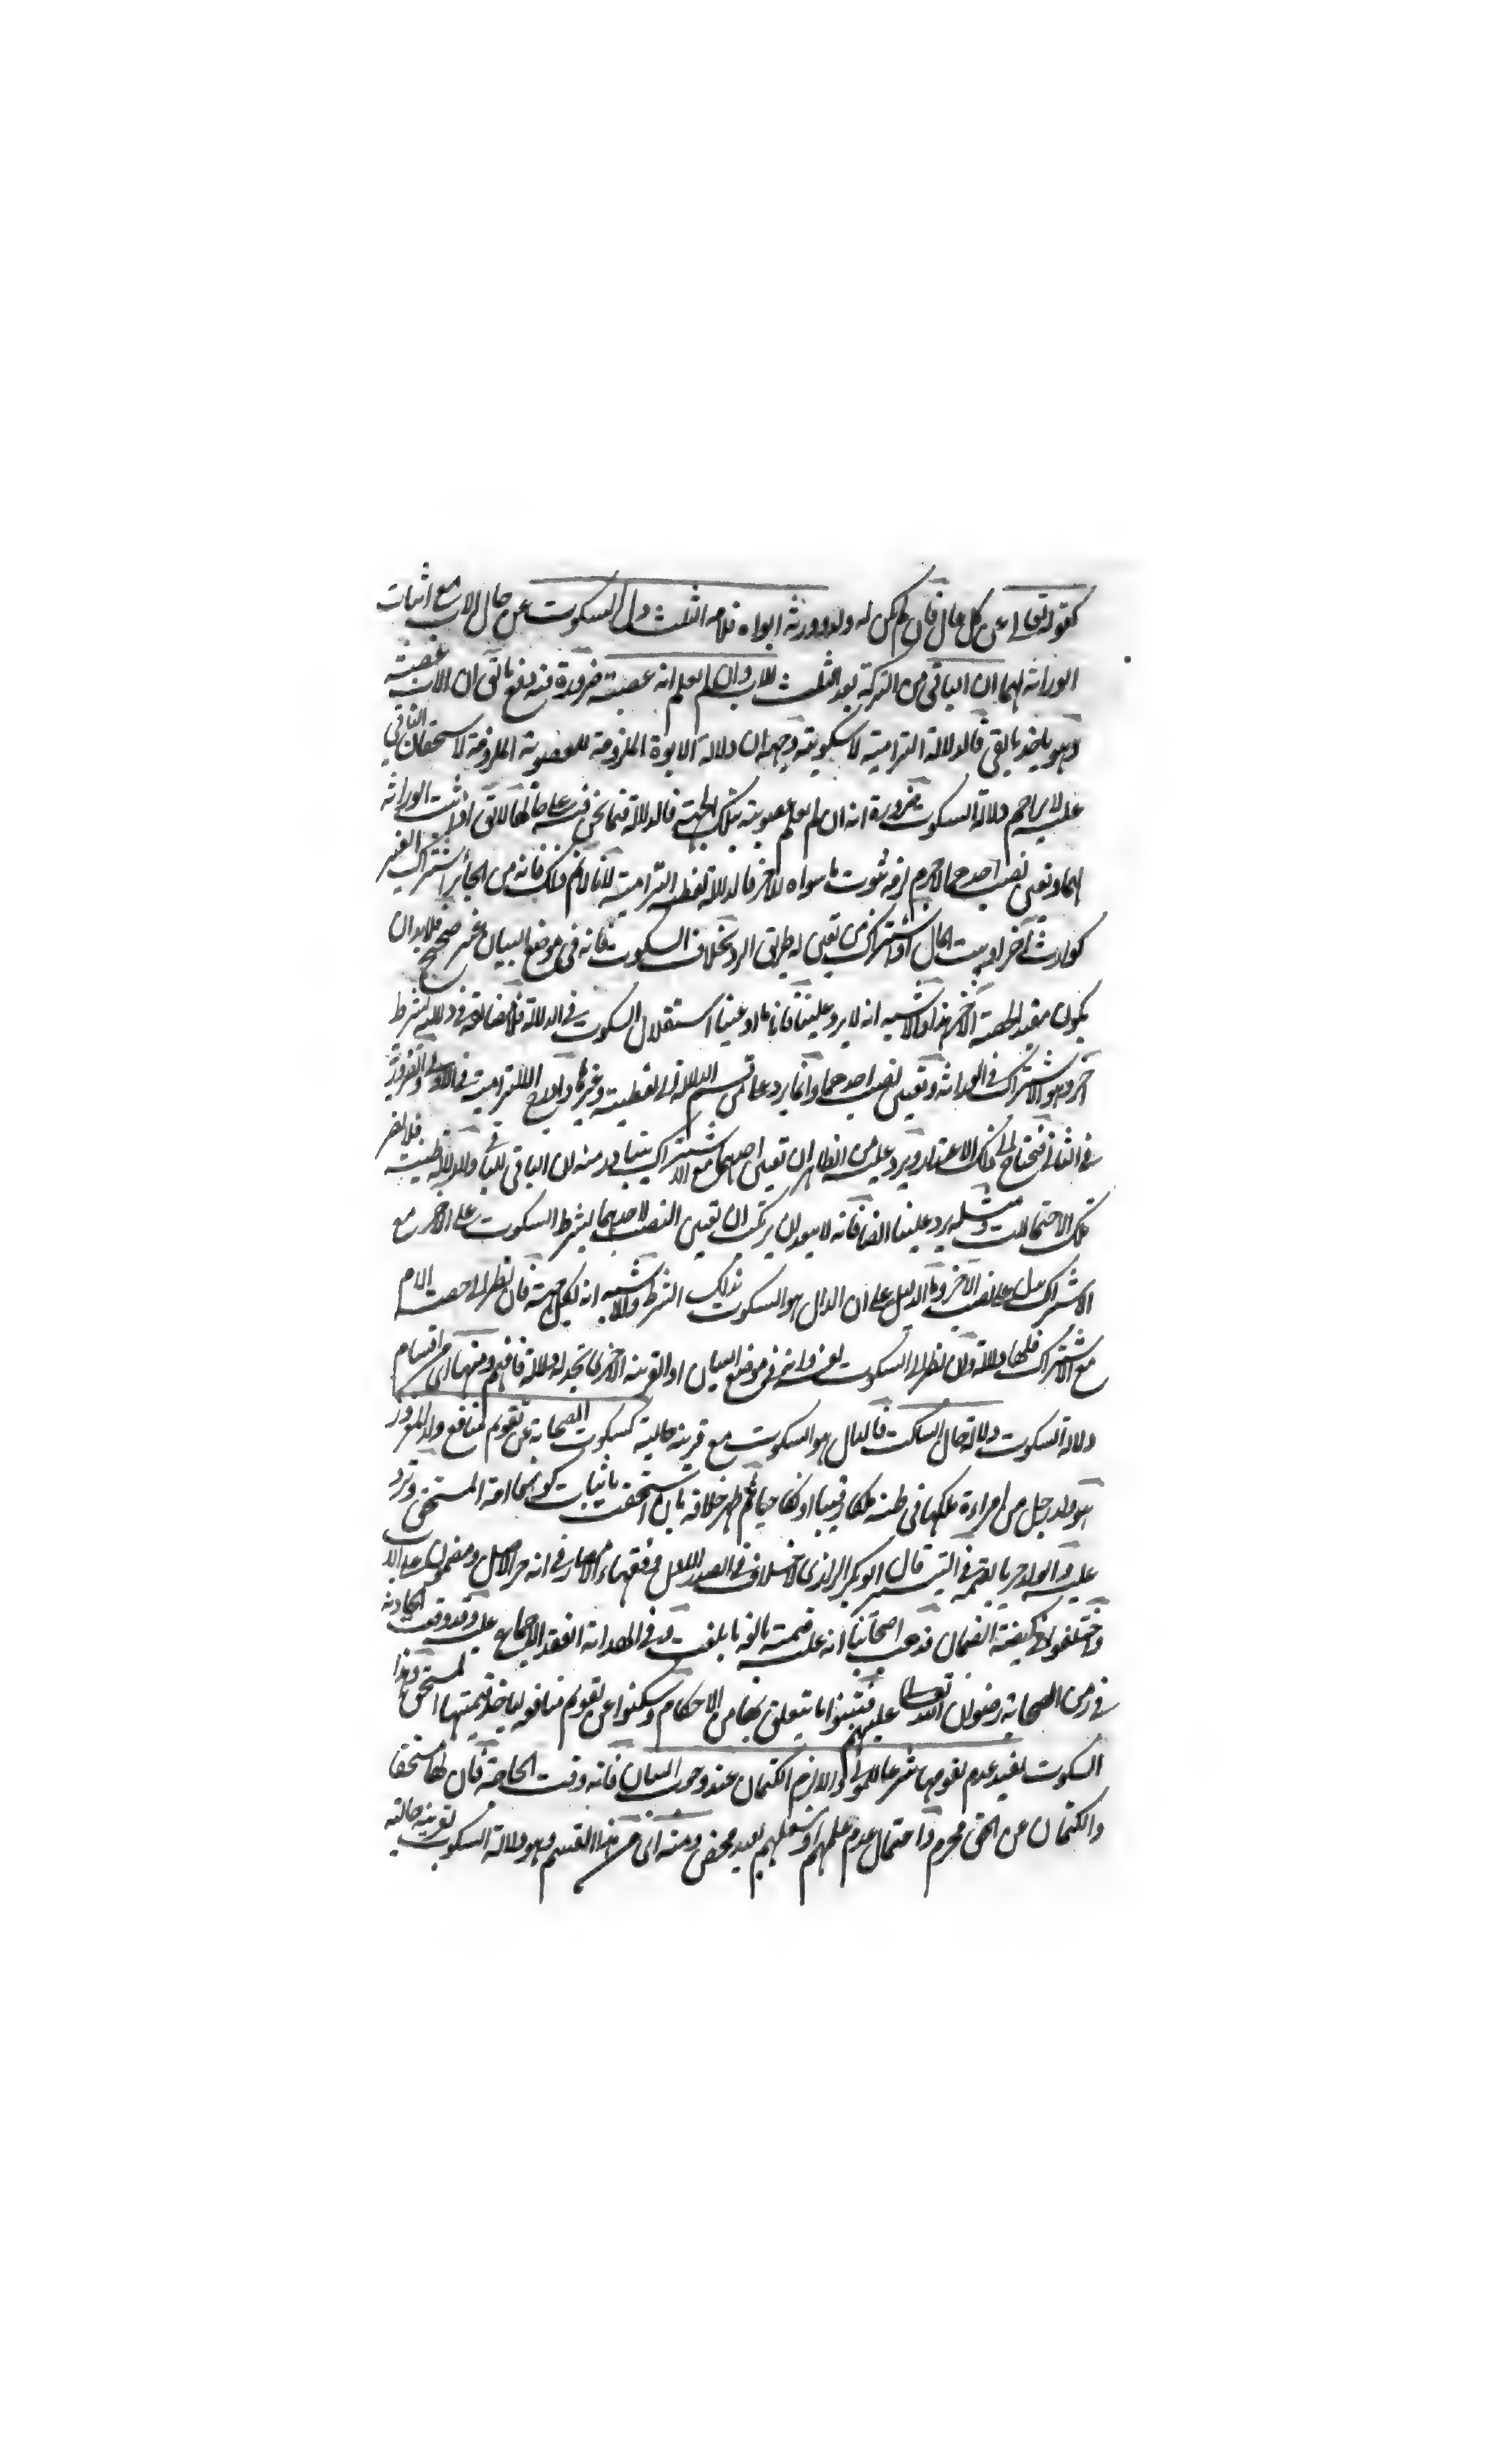 كقوله تعالى عن كل حال فان لم يكن له ولد وورثه ابواه فلامه الثلث دل السكوت عن حال الاب مع اثبات
الوراثة لهما ان الباقي من التركة بعد الثلث للاب وان لم يعلم انه عصبة ضرورة فيندفع ما قيل ان الاب عصبة
وهو ياخذ ما بقي فالدلالة التزامية لا سكوتية وجهه ان دلالة الابوة الملزومة للعصوبة الملزومة لاستحقاق الباقي
عليه لا يزاحم دلالة السكوت ضرورة انه ان لم يعلم عصوبته بتلك الجهة فالدلالة فيما نحن فيه على حالها لا يقال اذا ثبت الوراثة
لهما وتعين نصيب احدهما لا جرم لزمه ثبوت ما سواه للاخر فالدلالة لفظية التزامية لانا لا نم ذلك فانه من الجائز اشتراك الغير
كوارث اخر او بيت المال او اشتراك من تعين له بطريق الرد بخلاف السكوت فانه في موضع البيان غير صحيح فلا بد ان
يكون مفيدا لحصة الاخر هذا والاشبه انه لا يرد علينا فانا ما ادعينا استقلال السكوت في الدلالة فلا مضايقة في دلالته بشرط
اخر وهو الاشتراك في الوراثة وتعين نصيب احدهما وانما يرد على من قسم الدلالة الى لفظية وغيرها وادرج الالتزامية في الاولى والضرورية
في الثاني فيحتاج الى ذلك الاعتذار ويرد عليه من الظاهر ان تعين احدهما مع الاشتراك يتبادر منه ان الباقي للباقي والدلالة ظنية فلا يضر
تلك الاحتمالات ومثله يرد علينا ايضا فانه لا يبعد ان يرتكب ان تعيين النصيب لاحدهما بشرط السكوت على الاخر مع
الاشتراك يدل على نصيب الاخر وما الدليل على ان الدال هو السكوت بذلك الشرط والاشبه انه لكل جهة فان نظر الى حصة الام
مع الاشتراك فلها دلالة وان نظر الى السكوت لفه وانه في موضع البيان او القرينة الاخرى تجد له دلالة فافهم ومنها اي من اقسام
دلالة السكوت دلالة حال الساكت فالدال هو السكوت مع قرينة حالية كسكوت الصحابة عن تقويم منافع ولد المغرور
هو ولد رجل من امراءة ملكها في ظنه ملكا رقبيا او نكاحيا ثم ظهر خلافه بان استحقت باثبات كونها امة المستحق وترد
عليه والولد حر بالقيمة في التيسير قال ابو بكر الرازي لا خلاف في الصدر الاول وفقهاء الامصار في انه حر الاصل ومضمون على الاب
واختلفوا في كيفية الضمان فذهب اصحابنا انه عليه قيمته بالغة ما بلغت وفي الهداية انعقد الاجماع عليه وقد وقعت الحادثة
في زمن الصحابة رضوان الله تعالى عليهم فبينوا ما يتعلق بها من الاحكام وسكتوا عن تقويم منافعه لياخذ قيمتها المستحق وهذا
السكوت يفيد عدم تقومها شرعا للمولى والا لزم الكتمان عند وجوب البيان فانه وقت الحاجة فان لها مستحقا
والكتمان عن الحق محرم واحتمال عدم علمهم او شغلهم بعيد محض ومنه اي من هذا القسم وهو دلالة السكوت بقرينة حالية